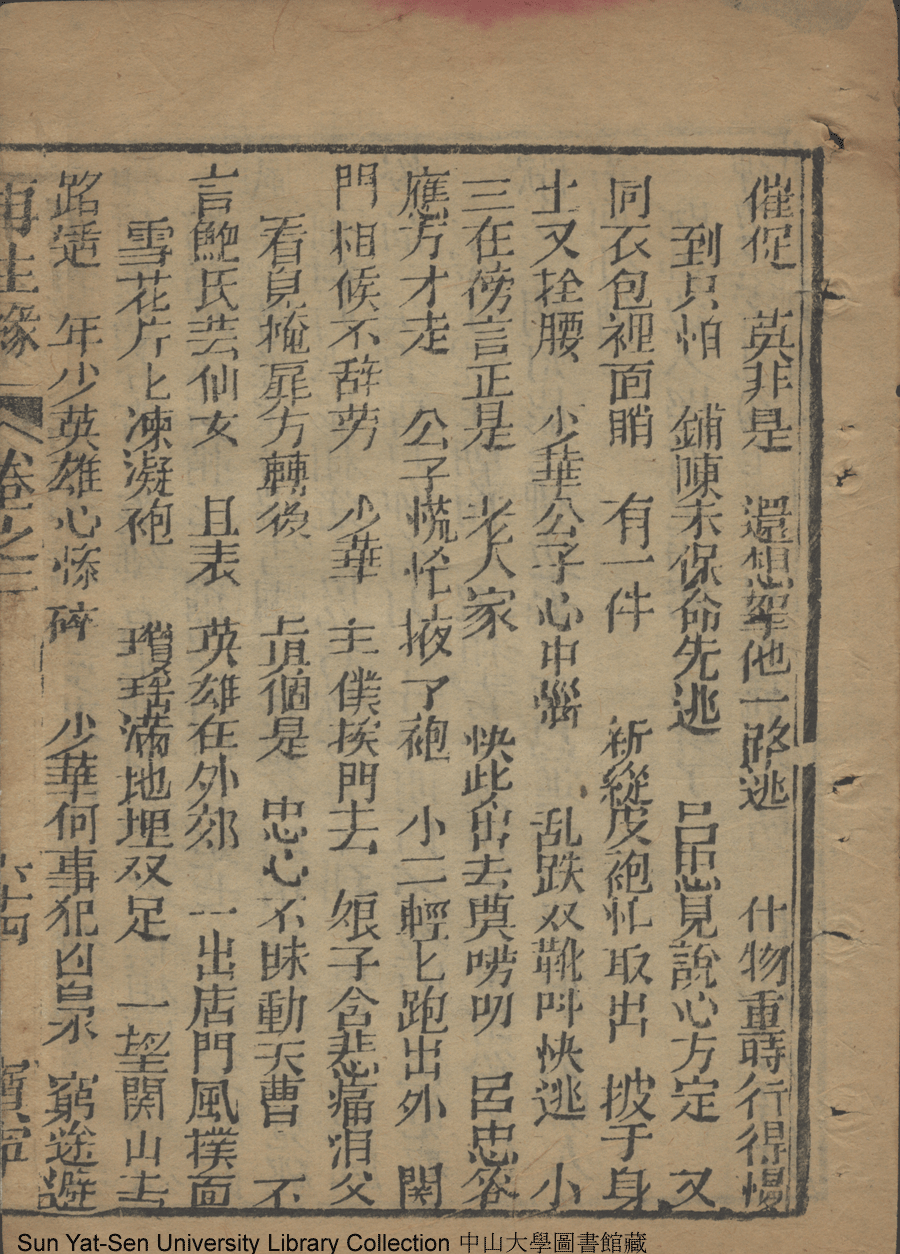 催促　英非是　還想挈他一路逃　什物重時行得慢
到只怕　鋪陳未保命先逃　呂忠見說心方定　又
同衣包裡面睄　有一件　新縫皮袍忙取出　披于身
上又拴腰　少華公子心中惱　乱跌双靴叫快逃　小
三在傍言正是　老人家　快些出去莫嘮叨　呂忠答
應方才走　公子慌忙掖了袍　小二輕匕跑出外　関
門相候不辞劳　少華　主僕挨門去　娘子含悲痛淚父
看見掩扉方轉後　真個是　忠心不昧動天曹　不
言鮑氏芸仙女　且表　英雄在外郊　一出店門風撲面
雪花片匕凍凝袍　瓊瑤滿地埋双足　一望関山去
路遥　年少英雄心慘碎　少華何事犯凶杲　窮途避
再生緣　卷之三　六十四　寶寧
Sun Yat-Sen University Library Collection 中山大學圖書館藏